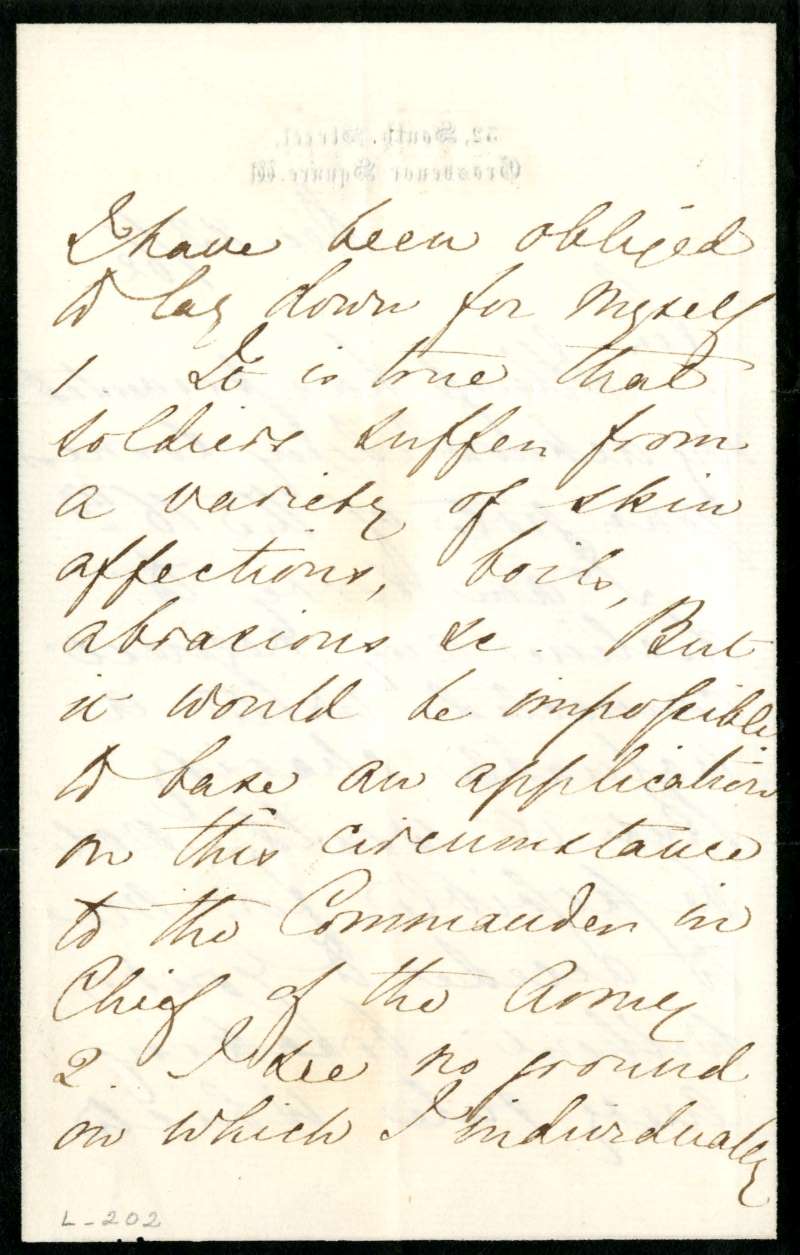 32, South Street,
Grosvenor Square. W
I have been obliged
to lay down for myself
1 It is true that
soldiers suffer from
a variety of skin
affections, boils,
abrasions &c. But
it would be impossible
to base an application
on this circumstance
to the Commander in
Chief of the Army
2. I see no ground
on which I individually
L-202